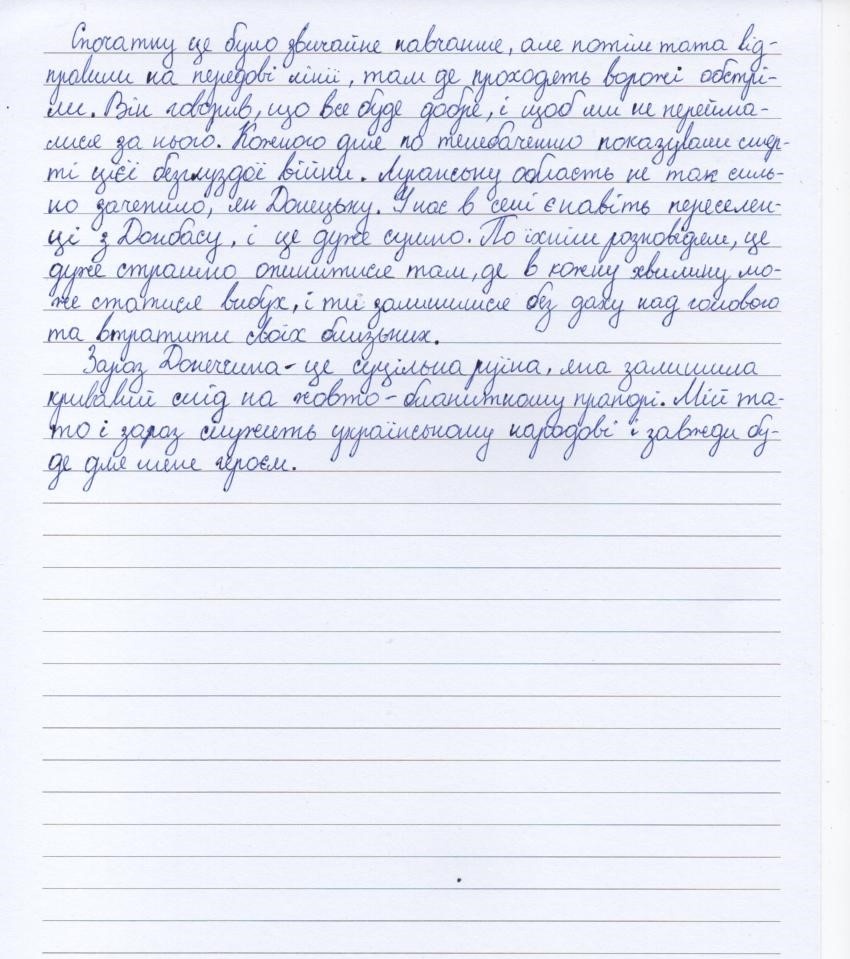 Спочатку це було звичайне навчання, але потім тата від-
правили на передові лінії, там де проходять ворожі обстрі-
ли. Він говорив, що все буде добре, і щоб ми не перейма-
лися за нього. Кожного дня по телебаченню показували смер-
ті цієї безглуздої війни. Луганську область не так силь-
но зачепило, як Донецьку. У нас в селі є навіть переселен-
ці з Донбасу, і це дуже сумно. По їхнім розповідям, це
дуже страшно опинитися там, де в кожну хвилину мо-
же статися вибух, і ти залишишся без даху над головою
та втратити своїх близьких.
Зараз Донеччина - це суцільна руїна, яка залишила
кривавий слід на жовто-блакитному прапорі. Мій та-
то і зараз служить українському народові і завжди бу-
де для мене героєм.